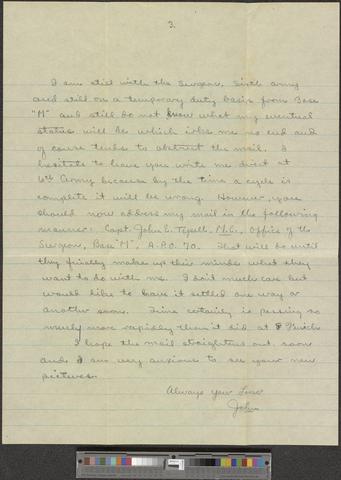 3.
I am still with the Surgeon, Sixth Army
and still on a temporary duty basis from Base
"M" and still do not know what my eventual
status will be which irks me no end and
of course tends to obstruct the mail. I
hesitate to have you write me direct at
6th Army because by the time a cycle is
complete it will be wrong. However, you
should now address my mail in the following
manner: Capt. John E. M.C., Office of the
Surgeon, Base "M", A.P.O. 70. That will be until
they finally make up their minds what they
want to do with me. I don't much care but
would like to have it settled one way or
another soon. Time certainly is passing so
much more rapidly than it did at
I hope the mail straightens out soon
and I am very anxious to see your new
pictures.
Always your
John